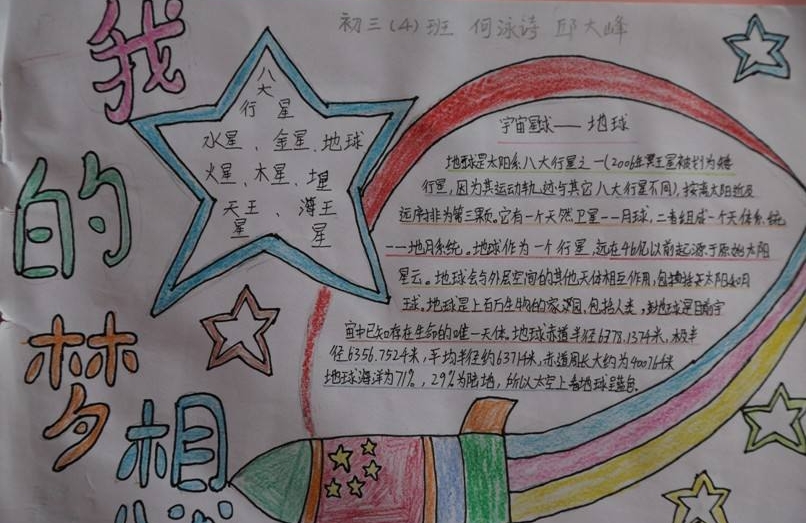 初三(4)班 何泳诗 邱大峰
我的梦想
八大
行星
水星、金星、地球
火星、木星、土星
天王星、海王星
宇宙星球——地球
地球是太阳系八大行星之一(2006年冥王星被划为矮
行星,因为其运动轨迹与其它八大行星不同),按离太阳由近及
远序排为第三颗。它有一个天然卫星——月球,二者组成一个天体系统
——地月系统。地球作为一个行星,远在46亿以前起源于原始太阳
星云。地球会与外层空间的其他天体相互作用,包括太阳和月
球。地球是上百万生物的家园,包括人类,地球是目前宇
宙中已知存在生命的唯一天体。地球赤道半径6378.137千米,极半
径6356.752千米,平均半径约6371千米,赤道周长大约为40076千米
地球海洋为71%,29%为陆地,所以太空上看地球呈蓝色。